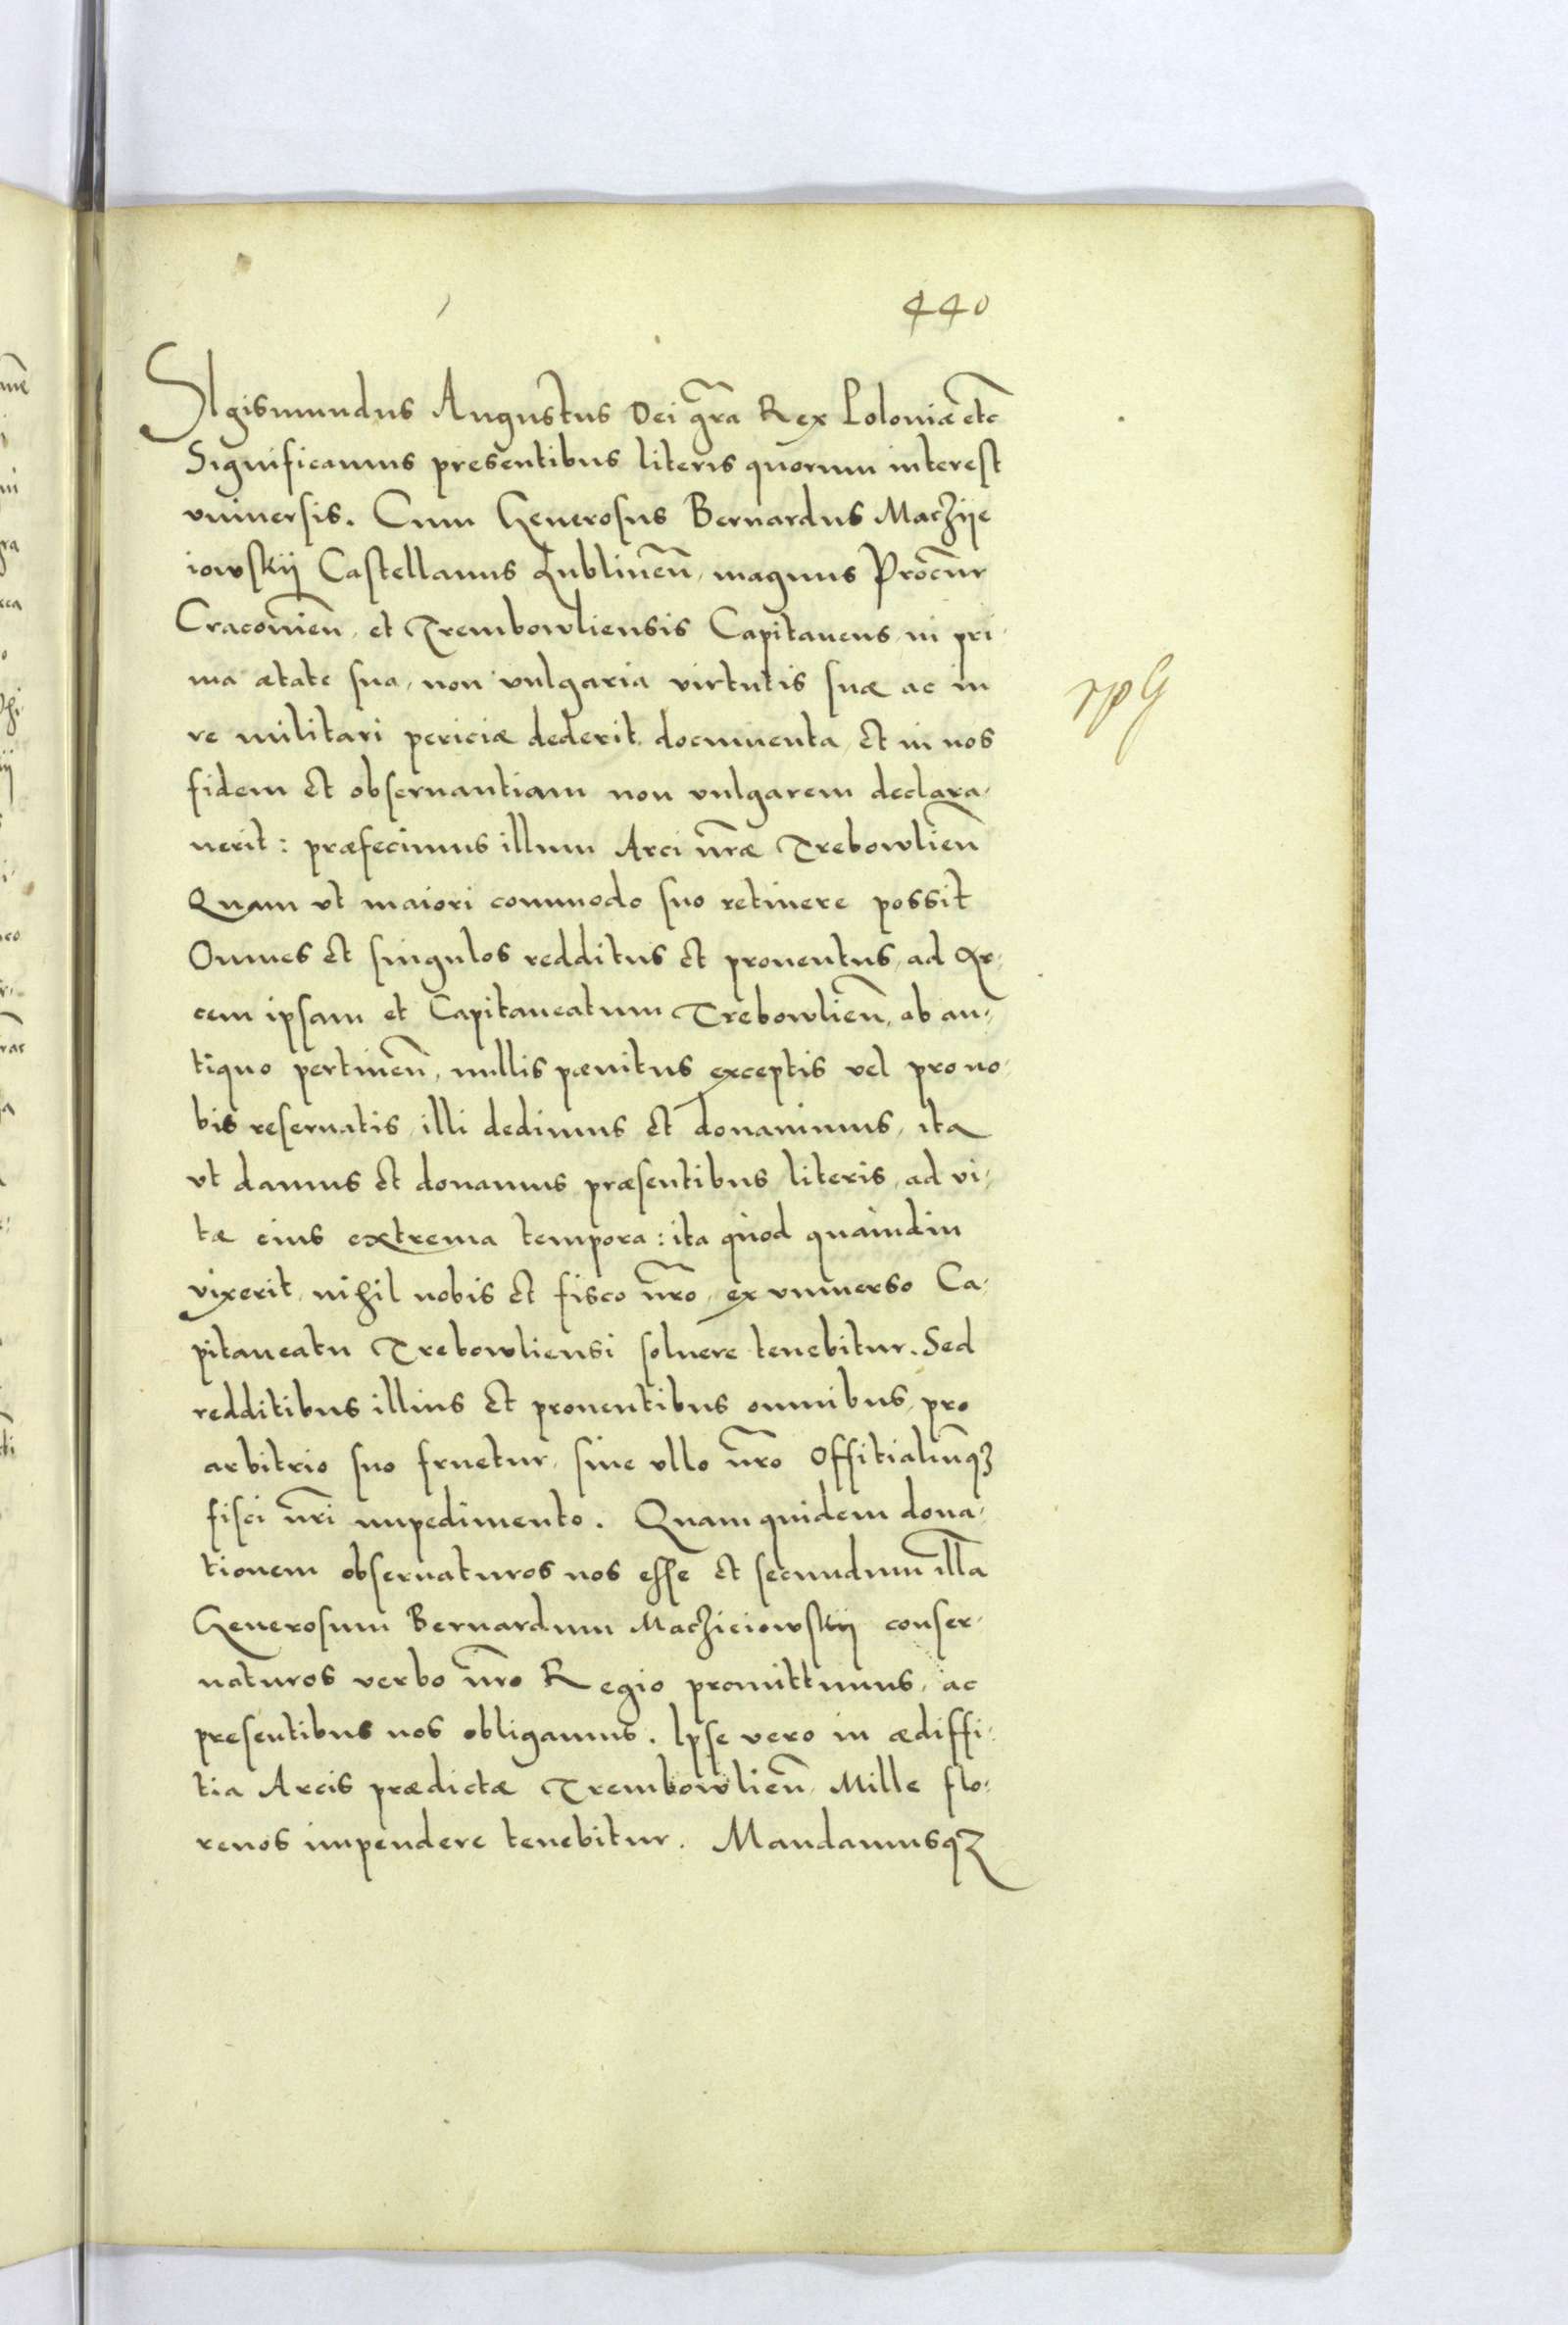 440
SIgismundus Augustus Dei gr̃a Rex Poloniæ etc̃
Significamus presentibus literis quorum interest
vniuersis. Cum Generosus Bernardus Maczije
iowskij Castellanus Lublineñ, magnus Procur̃
Cracouieñ, et Trembowliensis Capitaneus, in pri-
ma ætate sua, non vulgaria virtutis suæ ac in
re militari periciæ dederit documenta, et in nos
fidem et obseruantiam non vulgarem declara-
uerit: præfecimus illum Arci nr̃æ Trebowlieñ
Quam vt maiori commodo suo retinere possit
Omnes et singulos redditus et prouentus, ad Ar-
cem ipsam et Capitaneatum Trebowlieñ, ab an-
tiquo pertineñ, nullis pænitus exceptis vel pro no-
bis reseruatis, illi dedimus et donauimus, ita
vt damus et donamus præsentibus literis, ad vi-
tæ eius extrema tempora: ita quod quamdiu
vixerit, nihil nobis et fisco nr̃o, ex vniuerso Ca-
pitaneatu Trebowliensi soluere tenebitur. Sed
redditibus illius et prouentibus omnibus, pro
arbitrio suo fruetur, sine vllo nr̃o Offitialiũqz
fisci nr̃i impedimento. Quam quidem dona-
tionem obseruaturos nos esse et secundum illã
Generosum Bernardum Macziciowskij conser-
uaturos verbo nr̃o Regio promittimus, ac
presentibus nos obligamus. Ipse vero in ædiffi-
tia Arcis prædictæ Trembowlieñ, Mille flo-
renos impendere tenebitur. Mandamusqz